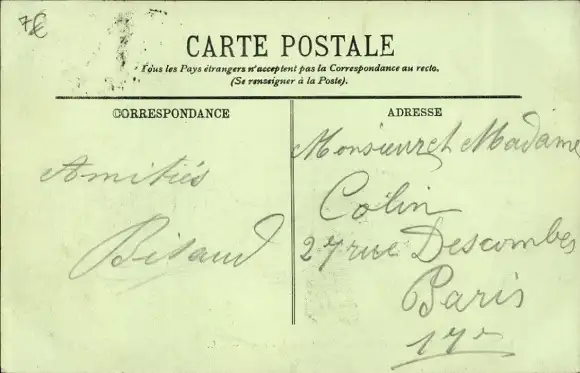 7€
CARTE POSTALE
Tous les Pays étrangers n'acceptent pas la Correspondance au recto.
(Se renseigner à la Poste).
CORRESPONDANCE
Amitiés
Bisaud
ADRESSE
Monsieur et Madame
Colin
27 rue Descombes
Paris
17e